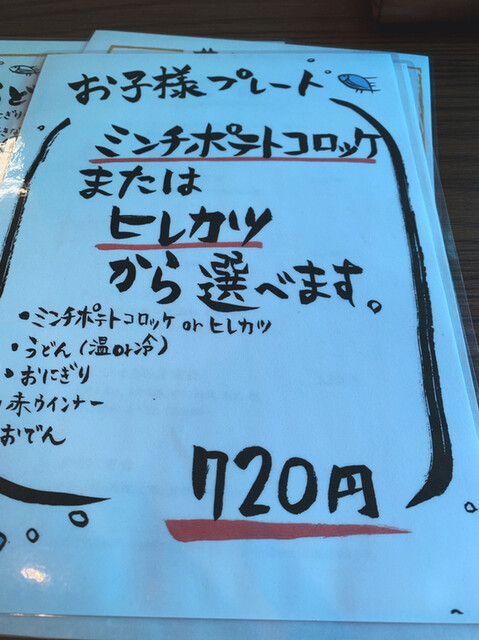 お子様プレート
ミンチポテトコロッケ
または
ヒレカツ
から選べます。
・ミンチポテトコロッケ or ヒレカツ
・うどん(温or冷)
・おにぎり
・赤ウインナー
おでん
720円